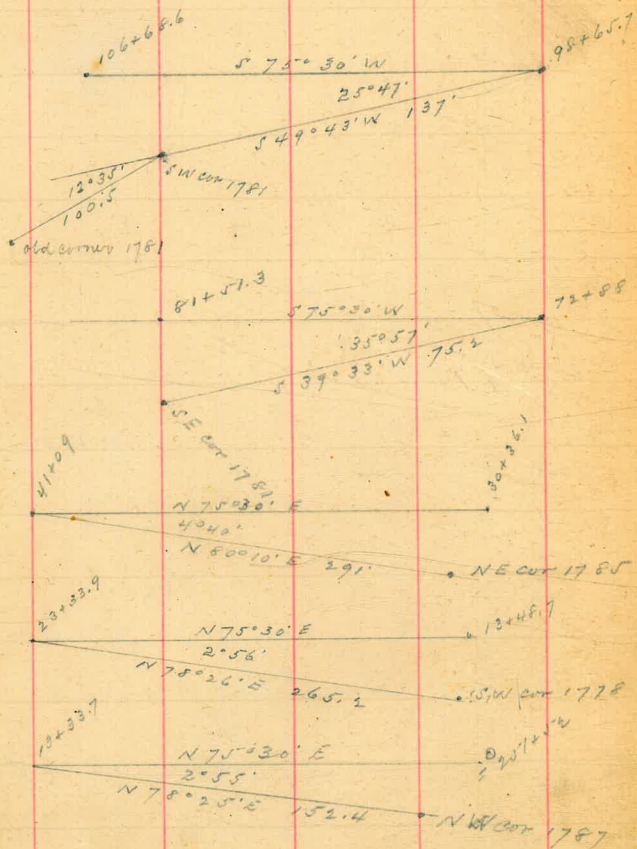 106+68.6
98+65.7
S 75° 30' W
25° 47'
S 49° 43' W 137'
12° 35'
100.5
SW cor 1781
old corner 1781
81+51.3
72+88
S 75° 30' W
35° 57'
S 39° 33' W 75.2
S.E cor 1781
41+09
30+36.1
N 75° 30' E
4° 40'
N 80° 10' E 291.
NE cor 1785
23+33.9
13+48.7
N 75° 30' E
2° 56'
N 78° 26' E 265.2
S.W cor 1778
13+33.7
N 75° 30' E
2° 55'
N 78° 25' E 152.4
NW cor 1787